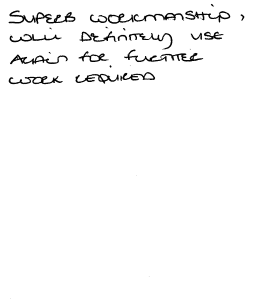 SUPERB WORKMANSHIP,
WILL DEFINITELY USE
AGAIN FOR FURTHER
WORK REQUIRED